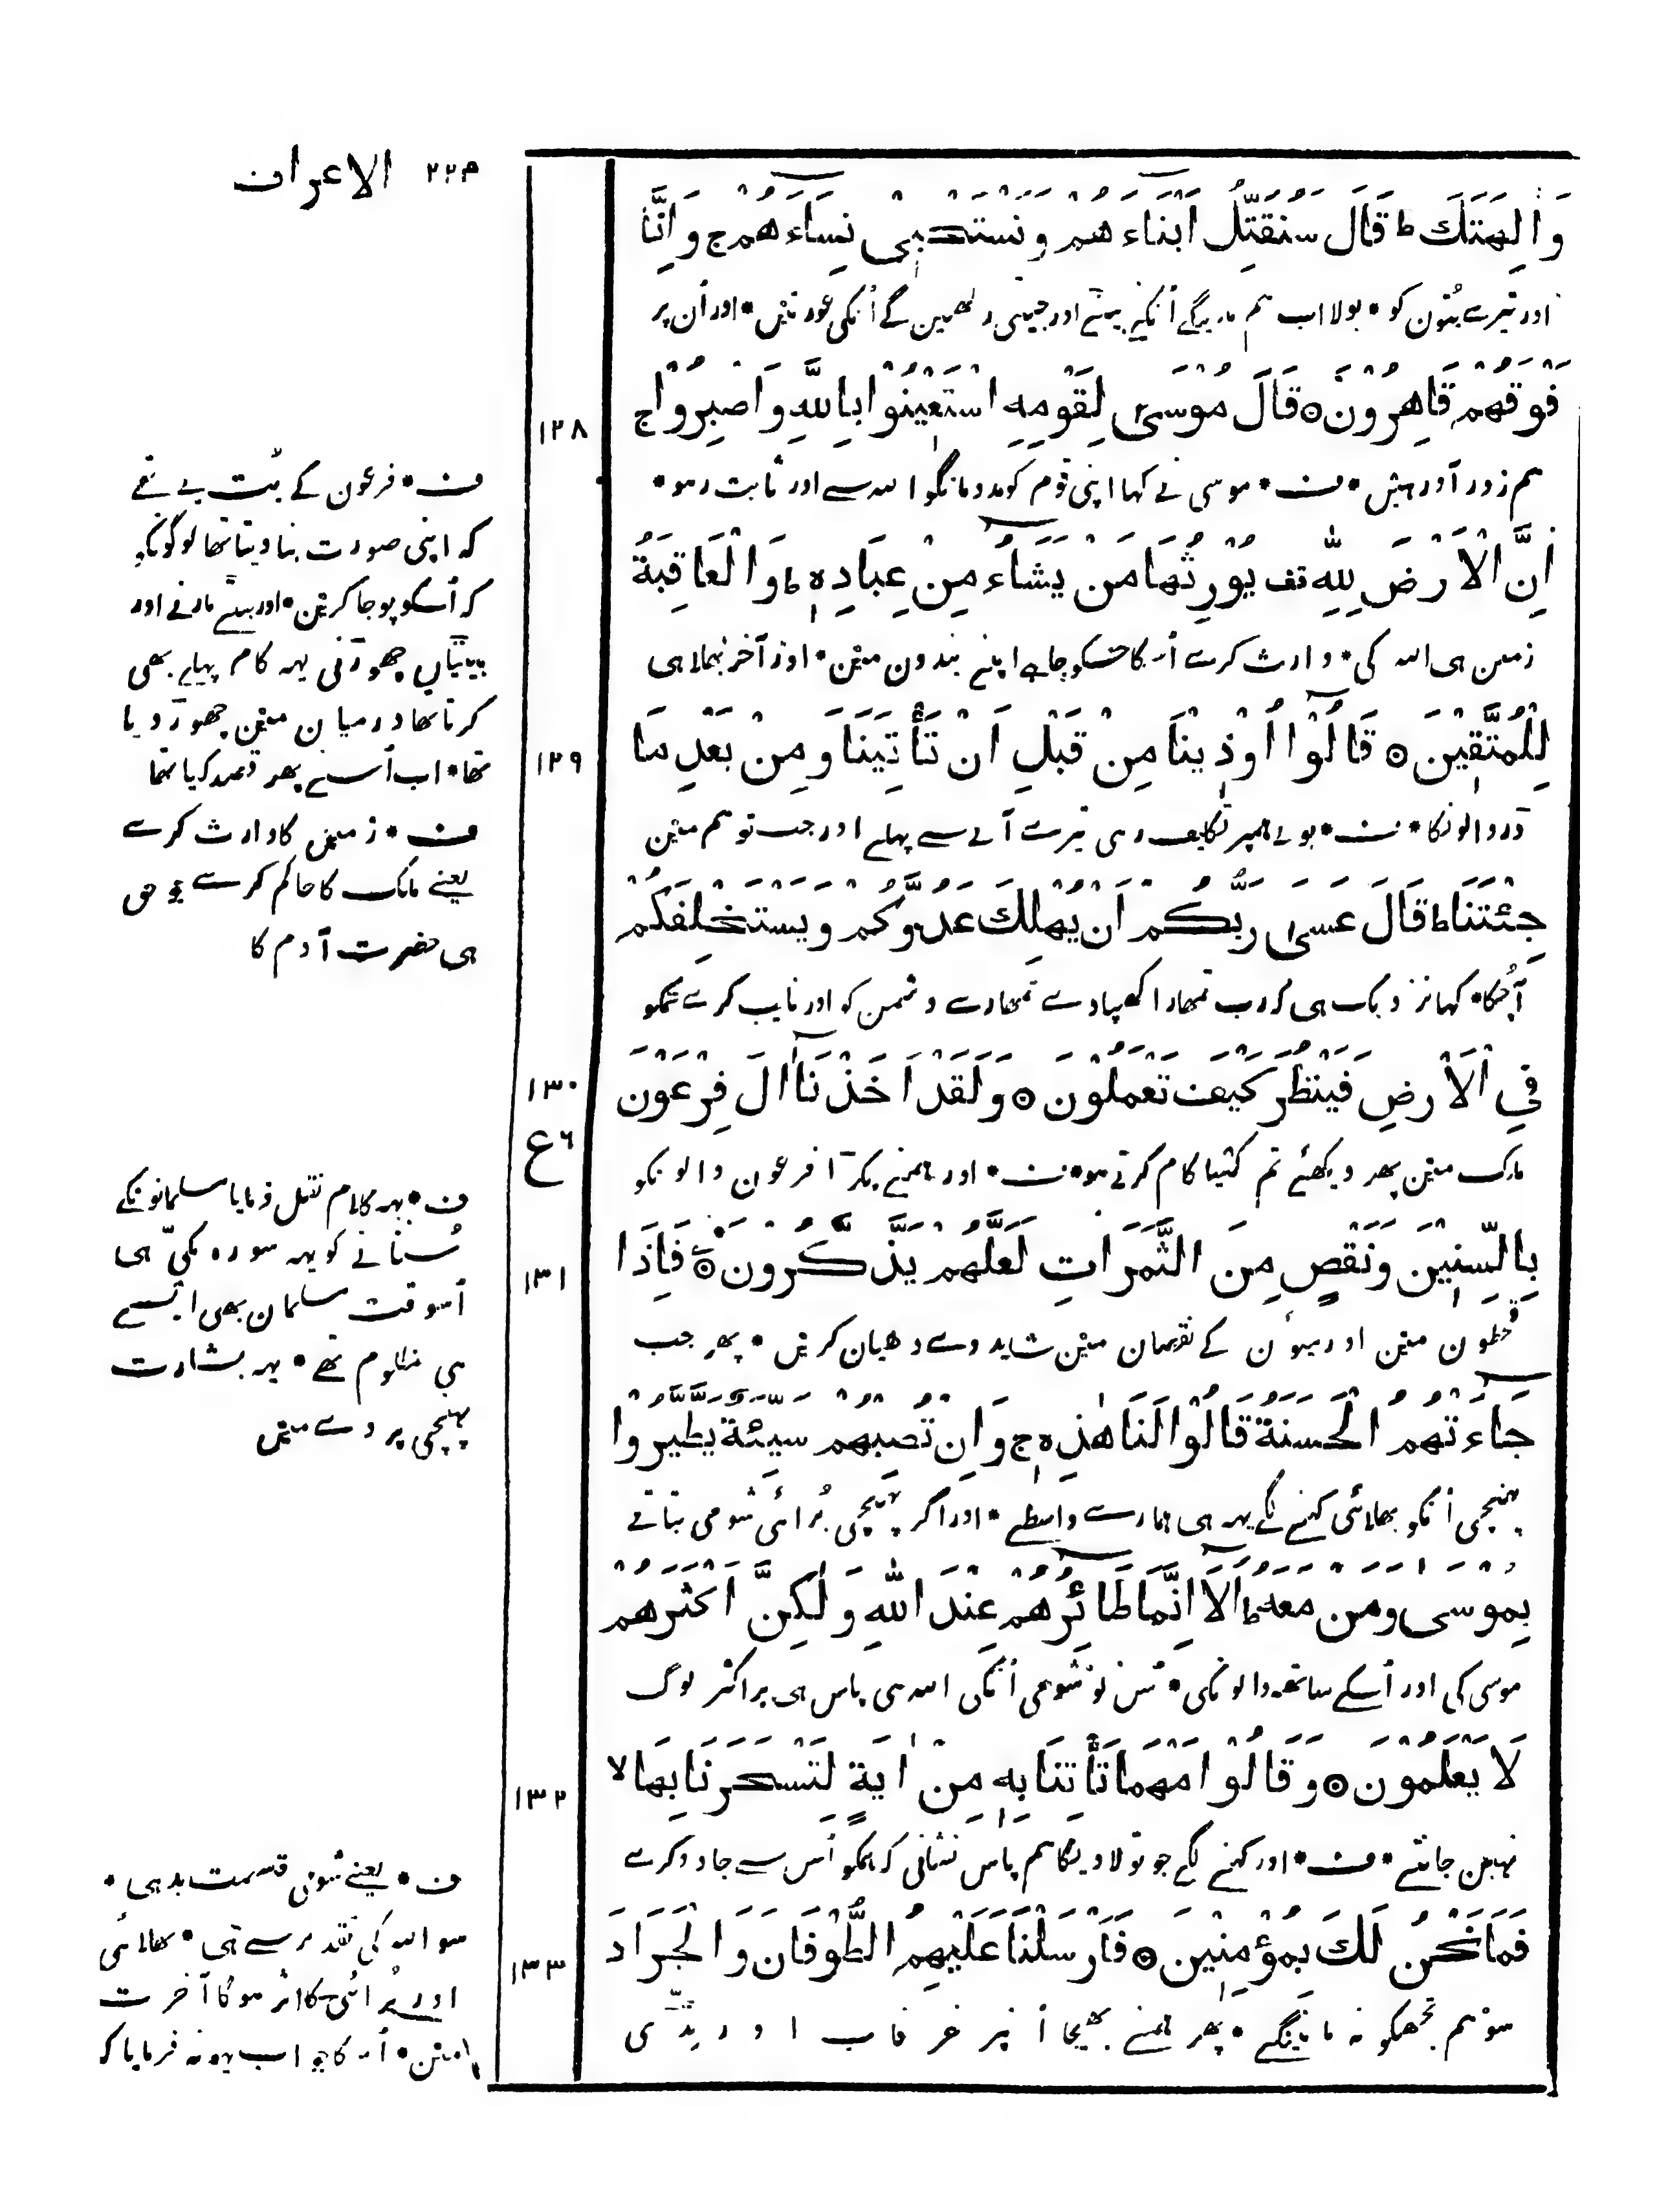 ۲۲۳ الاعراف
وَاٰلِهَتَكَ ط قَالَ سَنُقَتِّلُ اَبْنَاءَهُمْ وَنَسْتَحْيٖ نِسَاءَهُمْ ج وَاِنَّا
اور تیرے بُتون کو • بولا اب ہم مارینگے اُنکے بیٹے اور جیتی رکھین گے اُنکی عورتین • اور اُن پر
فَوْقَهُمْ قَاهِرُوْنَ ۝ قَالَ مُوْسٰى لِقَوْمِهِ اسْتَعِيْنُوْا بِاللّٰهِ وَاصْبِرُوْا ج
۱۲۸
ہم زور آور ہین • ف • موسی نے کہا اپنی قوم کو مدد مانگو اللہ سے اور ثابت رہو •
اِنَّ الْاَرْضَ لِلّٰهِ قف يُوْرِثُهَا مَنْ يَّشَاءُ مِنْ عِبَادِهٖ ط وَالْعَاقِبَةُ
زمین ہی اللہ کی • وارث کرے اُسکا جسکو چاہے اپنے بندون مین • اور آخر بھلا ہی
لِلْمُتَّقِيْنَ ۝ قَالُوْا اُوْذِيْنَا مِنْ قَبْلِ اَنْ تَأْتِيَنَا وَمِنْ بَعْدِ مَا
۱۲۹
ڈروالونکا • ف • بولے ہمپر تکلیف رہی تیرے آنے سے پہلے اور جب تو ہم مین
جِئْتَنَا ط قَالَ عَسٰى رَبُّكُمْ اَنْ يُّهْلِكَ عَدُوَّكُمْ وَيَسْتَخْلِفَكُمْ
آچُکا • کہا نزدیک ہی کہ رب تمھارا کھپاوے تمھارے دشمن کو اور نایب کرے تمکو
فِي الْاَرْضِ فَيَنْظُرَ كَيْفَ تَعْمَلُوْنَ ۝ وَلَقَدْ اَخَذْنَا اٰلَ فِرْعَوْنَ
۱۳۰
ع ۶
ملک مین پھر دیکھئے تم کیسا کام کرتے ہو • ف • اور ہمنے پکڑا فرعون والونکو
بِالسِّنِيْنَ وَنَقْصٍ مِنَ الثَّمَرَاتِ لَعَلَّهُمْ يَذَّكَّرُوْنَ ۝ فَاِذَا
۱۳۱
قحطون مین اور میوُن کے نقصان مین شاید وے دھیان کرین • پھر جب
جَاءَتْهُمُ الْحَسَنَةُ قَالُوْا لَنَا هٰذِهٖ ج وَاِنْ تُصِبْهُمْ سَيِّئَةٌ يَّطَّيَّرُوْا
پہنچی اُنکو بھلائی کہنے لگے یہہ ہی ہمارے واسطے • اور اگر پہنچی بُرائی شومی بتاتے
بِمُوْسٰى وَمَنْ مَّعَهُ ط اَلَا اِنَّمَا طَائِرُهُمْ عِنْدَ اللّٰهِ وَلٰكِنَّ اَكْثَرَهُمْ
موسی کی اور اُسکے ساتھہ والونکی • سُن لو شومی اُنکی اللہ ہی پاس ہی پر اکثر لوگ
لَا يَعْلَمُوْنَ ۝ وَقَالُوْا مَهْمَا تَأْتِنَا بِهٖ مِنْ اٰيَةٍ لِّتَسْحَرَنَا بِهَا لا
۱۳۲
نہین جانتے • ف • اور کہنے لگے جو تو لاویگا ہم پاس نشانی کہ ہمکو اُس سے جادو کرے
فَمَا نَحْنُ لَكَ بِمُؤْمِنِيْنَ ۝ فَاَرْسَلْنَا عَلَيْهِمُ الطُّوْفَانَ وَالْجَرَادَ
۱۳۳
سو ہم تجھکو نہ مانینگے • پھر ہمنے بھیجا اُنپر غرقاب اور ٹڈی
ف • فرعون کے بُت یے تھے
کہ اپنی صورت بنا دیتا تھا لوگونکو
کہ اُسکو پوجا کرین • اور بیٹے مارنے اور
بیٹیاں چھوڑنی یہہ کام پہلے بھی
کرتا تھا درمیان مین چھوڑ دیا
تھا • اب اُسنے پھر قصد کیا تھا
ف • زمین کا وارث کرے
یعنے ملک کا حاکم کرے جو حق
ہی حضرت آدم کا
ف • یہہ کلام نقل فرمایا مسلمانونکے
سُنانے کو یہہ سورہ مکّی ہی
اُسوقت مسلمان بھی ایسے
ہی مظلوم تھے • یہہ بشارت
پہنچی پردے مین
ف • یعنے شومی قسمت بد ہی •
سو اللہ کی تقدیر سے ہی • بھلائی
اور بُرائی کا اثر ہوگا آخرت
مین • اُسکا جواب یہہ نہ فرمایا کہ